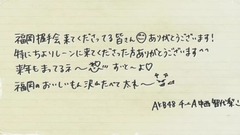 福岡握手会来てくださってる皆さん ありがとうございます!
特にちよりレーンに来てくださった方ありがとうございます^^
来年もまってるネ〜 想!!! すて〜るよ♡
福岡のおいしいもん 沢山たべて太れ〜
AKB48 チームA 中西智代梨